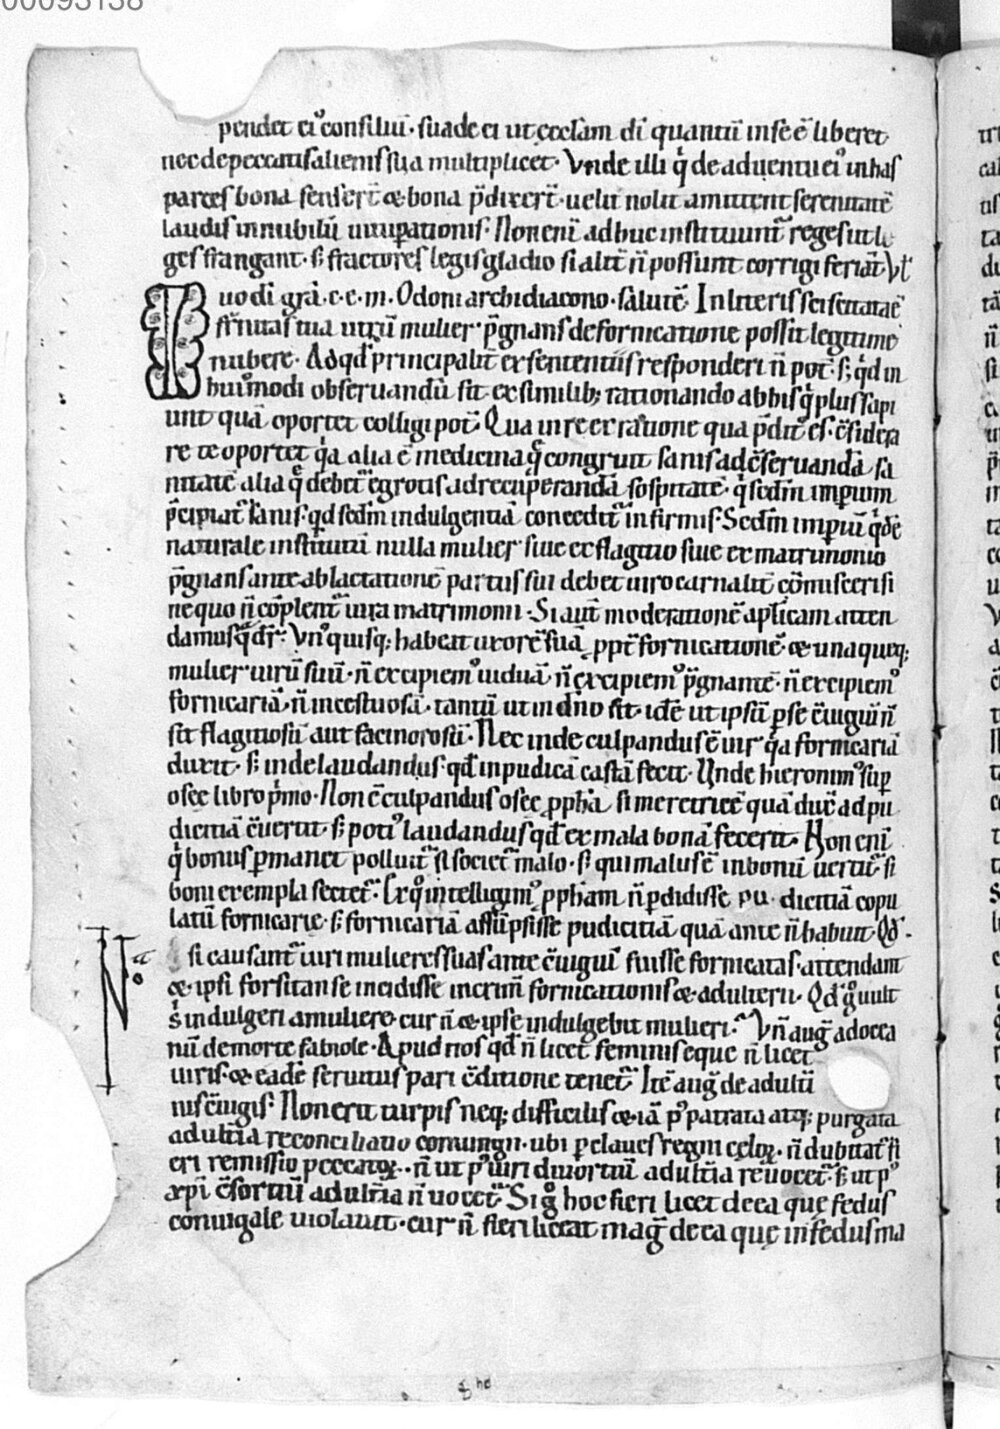 00093138
pendet ei⁹ consiliū· suade ei ut ęcclam di quantū in se ē liberet
nec de peccatis alienis sua multiplicet· Vnde illi q̇ de aduentu ei⁹ in has
partes bona senserт̄ & bona p̄dixert̄· uelut nolit amittent serenitatē
laudis in nubilū uitupationis· Non enī ad hoc instituunt̄ reges ut le
ges frangant· s; fractores legis gladio si alit̄ n̄ possunt corrigi feriāt· Vl̄
uo di grā· c· e· m· Odoni archidiacono· salutē· In litteris sciscitatᷓ ē
fr̄nitas tua utrū mulier p̄gnans de fornicatione possit legitime
nubere· Ad qd̄ principalit̄ ex sententiis responderi n̄ pot̄· s; qd in
hui⁹modi obseruandū sit ex similib; rationando ab his q̄ plus sapi
unt quā oportet colligi pot̄· Qua in re ex ratione qua p̄dit⁹ es c̄sidera
re te oportet q̇a alia ē medicina q̄ congruit sanis ad c̄seruandā sa
nitatē alia q̄ debet̄ egrotis ad recuperandā sospitatē· q̇ sedm imperium
p̄cipiat̄ sanis· qd sedm indulgentiā concedit̄ infirmis· Sedm imperiū q̇dē
naturale institutū nulla mulier siue ex flagitio siue ex matrimonio
p̄gnans ante ablactationē partus sui debet uiro carnalit̄ cōmisceri si
ne quo n̄ cōplent̄ iura matrimonii· Si aut̄ moderationē aplicam atten
damus q̄ dr̄· Vn⁹quisq; habeat uxorē suā ppt̄ fornicationē· & unaqueq;
mulier uirū suū· n̄ excipiem⁹ uiduā n̄ excipiem⁹ p̄gnantē· n̄ excipiem⁹
fornicariā· n̄ incestuosā· tantū ut in dno sit· idē ut ipsū p se c̄iugiū n̄
sit flagitiosū aut facinorosū· Nec inde culpandus ē uir q̇a fornicariā
duxit· s; inde laudandus· qd̄ inpudicā castā fecit· Unde hieronim⁹ sup
osee libro ṗmo· Non ē culpandus osee ppha si meretricē quā duc̄ ad pu
dicitiā c̄uertit· s; poti⁹ laudandus qd̄ ex mala bonā fecerit· Non enī
q̇ bonus pmanet polluit̄ si societ̄ malo· s; qui malus ē in bonū uertit̄ si
boni exempla sectet̄· Ex q⁰ intelligim⁹ ppham n̄ pdidisse pu dicitiā copu
latū fornicarie· s; fornicariā assūpsisse pudicitiā quā ante n̄ habuit· Qd̄
si causant̄ uiri mulieres suas ante c̄iugiū fuisse fornicatas· attendant
& ipsi forsitan se incidisse in crim̄ fornicationis & adulterii· Qd̄ g⁰ uult
s indulgeri a muliere· cur n̄ & ipse indulgebit mulieri· Vn̄ aug̅ ad occa
nū de morte fabiole· Apud nos qd̄ n̄ licet feminis eque n̄ licet
uiris· & eadē seruitus pari c̄ditione tenet̄· Itē aug̅ de adultī
nis c̄iugiis· Non erit turpis neq; difficilis & iā p⁹ patrata atq; purgata
adultia reconciliatio coniungii· ubi p claues regni cęloꝝ· n̄ dubitat̄ fi
eri remissio peccatoꝝ· n̄ ut p⁹ uiri diuortiū adultia reuocet̄· s; ut p⁹
xpi c̄sortiū adultia n̄ uocet̄· Si g⁰ hoc fieri licet de ea que fedus
coniugale uiolauit· cur n̄ fieri liceat mag̅ de ea quę in fedus ma